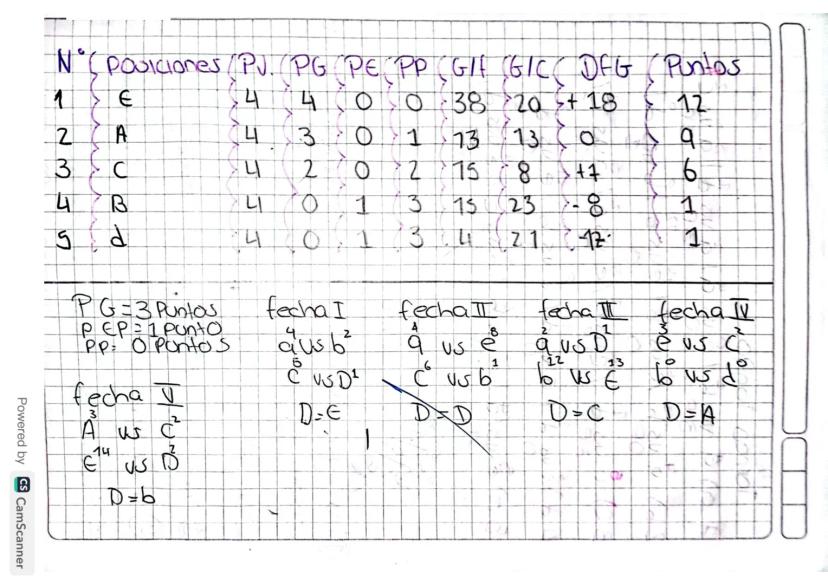 N° Posiciones PJ. PG PE PP G/f G/C DFG Puntos
1 E 4 4 0 0 38 20 +18 12
2 A 4 3 0 1 13 13 0 9
3 C 4 2 0 2 15 8 +7 6
4 B 4 0 1 3 15 23 -8 1
5 d 4 0 1 3 4 21 -17 1
PG=3 Puntos fecha I fecha II fecha III fecha IV
PEP=1 Punto
PP= 0 Puntos
4 2 8 2 1 3 2
a vs b a vs e a vs D e vs C
5 1 6 1 12 13 0 0
C vs D C vs b b vs E b vs d
D=E D=D D=C D=A
fecha V
3 2
A vs C
14 2
E vs D
D=b
Powered by CS CamScanner